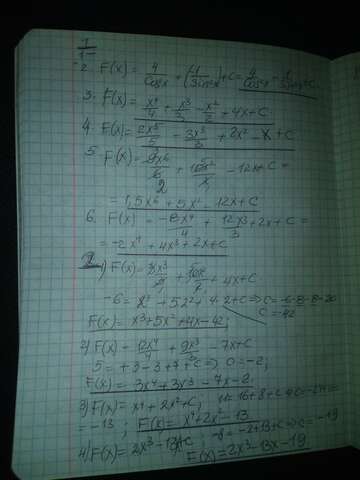 1
2. F(x) = 4/cos x + (-1/sin²x) + C = 4/cos x - 1/sin²x + C
3. F(x) = x⁴/4 + x³/3 - x²/2 + 4x + C
4. F(x) = 2x⁵/5 - 3x³/3 + 2x² - x + C
5. F(x) = 9x⁶/6 + 10x²/2 - 12x + C =
2
= 1,5x⁶ + 5x² - 12x + C
6. F(x) = -8x⁴/4 + 12x³/3 + 2x + C =
= -2x⁴ + 4x³ + 2x + C
2. 1) F(x) = 3x³/3 + 10x²/2 + 4x + C
-6 = 2³ + 5·2² + 4·2 + C ⇒ C = -6-8-8-20
C = -42
F(x) = x³ + 5x² + 4x - 42;
2) F(x) = 12x⁴/4 + 9x³/3 - 7x + C
5 = +3-3+7+C ⇒ C = -2;
F(x) = 3x⁴ + 3x³ - 7x - 2
3) F(x) = x⁴ + 2x² + C; 11 = 16 + 8 + C
= -13; F(x) = x⁴ + 2x² - 13
4) F(x) = 2x³ - 13x + C; -8 = -2 + 13 + C ⇒ C = -19
F(x) = 2x³ - 13x - 19